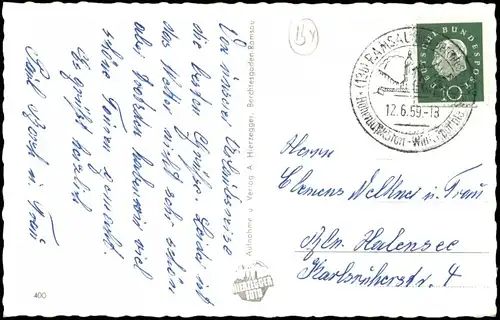 Von unserer Urlaubsreise
die besten Grüße. Leider ist
das Wetter nicht sehr schön
aber trotzdem haben wir viel
schöne Touren gemacht.
Es grüßt herzlich
Paul u. Frau
Aufnahme u. Verlag A. Hierzegger, Berchtesgaden-Ramsau
HIERZEGGER
FOTO
400
DEUTSCHE BUNDESPOST
10
(13b) RAMSAU
12.6.59.-18
Höhenluftkurort - Wintersportplatz
Herrn
Clemens und Frau
Bln. Halensee
Karlsruherstr. 4